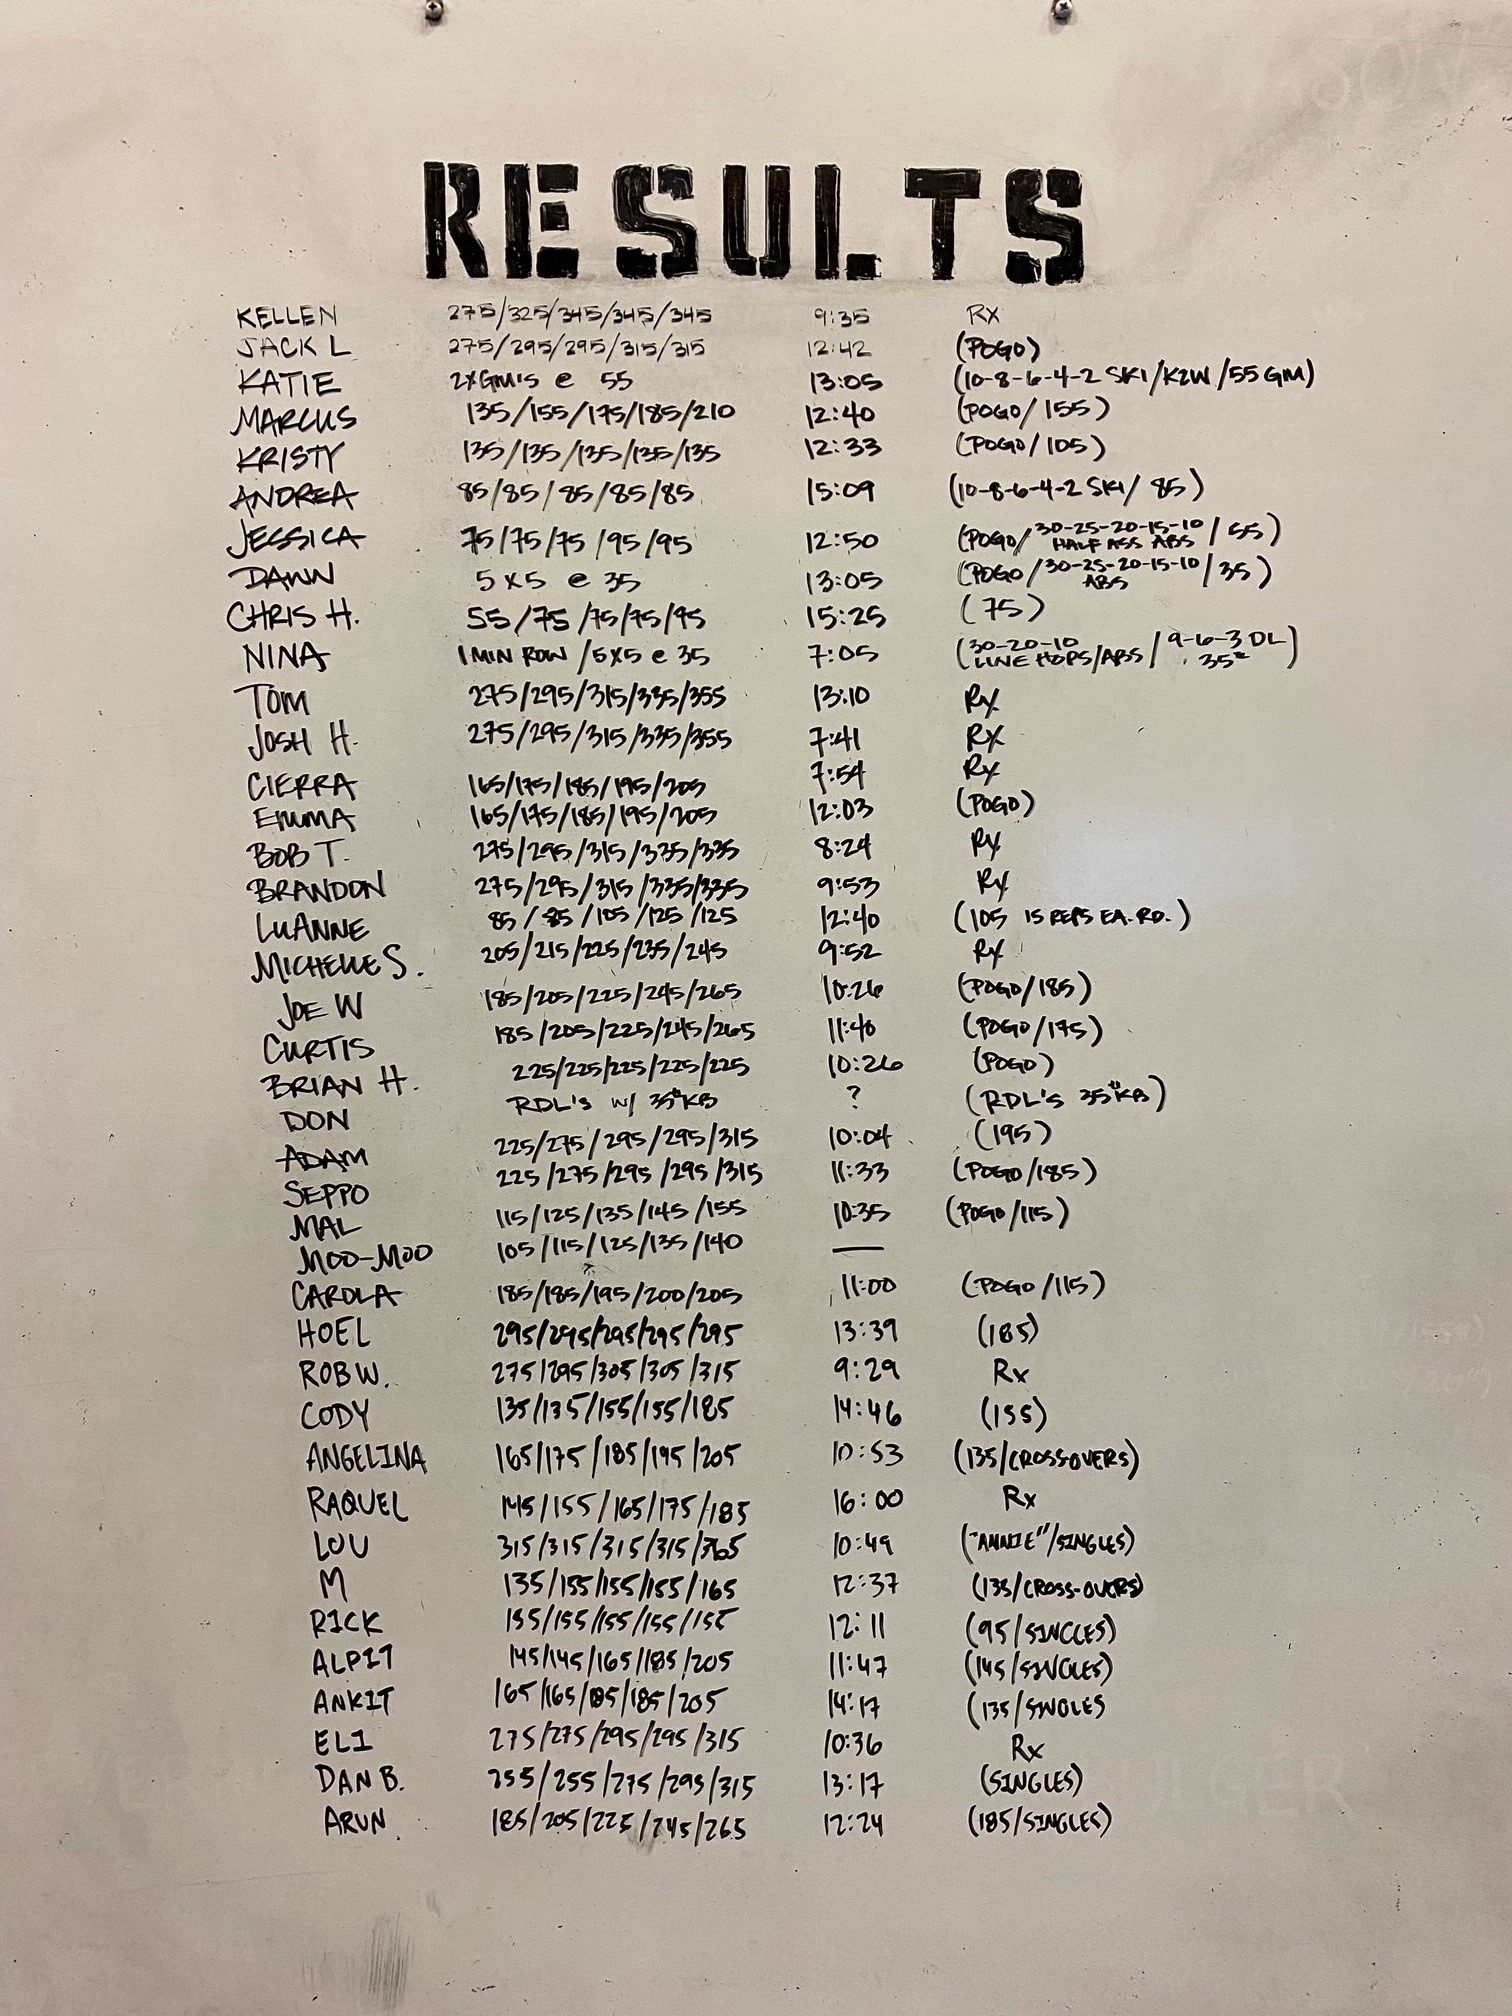 RESULTS
KELLEN 275/325/345/345/345 9:35 Rx
JACK L 275/295/295/315/315 12:42 (POGO)
KATIE 2xGM's @ 55 13:05 (10-8-6-4-2 SKI/K2W/55 GM)
MARCUS 135/155/175/185/210 12:40 (POGO/155)
KRISTY 135/135/135/135/135 12:33 (POGO/105)
ANDREA 85/85/85/85/85 15:09 (10-8-6-4-2 SKI/85)
JESSICA 75/75/75/95/95 12:50 (POGO/30-25-20-15-10 HALF ASS ABS/55)
DAWN 5x5 @ 35 13:05 (POGO/30-25-20-15-10 ABS/35)
CHRIS H. 55/75/75/75/95 15:25 (75)
NINA 1 MIN ROW/5x5 @ 35 7:05 (30-20-10 LINE HOPS/ABS/9-6-3 DL 35#)
TOM 275/295/315/335/355 13:10 Rx
JOSH H. 275/295/315/335/355 7:41 Rx
CIERRA 165/175/185/195/205 7:54 Rx
EMMA 165/175/185/195/205 12:03 (POGO)
BOB T. 275/295/315/335/335 8:24 Rx
BRANDON 275/295/315/335/335 9:53 Rx
LUANNE 85/85/105/125/125 12:40 (105 15 REPS EA. RD.)
MICHELLE S. 205/215/225/235/245 9:52 Rx
JOE W 185/205/225/245/265 10:26 (POGO/185)
CURTIS 185/205/225/245/265 11:40 (POGO/175)
BRIAN H. 225/225/225/225/225 10:26 (POGO)
DON RDL's w/ 35#KB ? (RDL's 35#KB)
ADAM 225/275/295/295/315 10:04 (195)
SEPPO 225/275/295/295/315 11:33 (POGO/185)
MAL 115/125/135/145/155 10:35 (POGO/115)
MOO-MOO 105/115/125/135/140 —
CAROLA 185/185/195/200/205 11:00 (POGO/115)
HOEL 295/295/295/295/295 13:39 (185)
ROB W. 275/295/305/305/315 9:29 Rx
CODY 135/135/155/155/185 14:46 (155)
ANGELINA 165/175/185/195/205 10:53 (135/CROSSOVERS)
RAQUEL 145/155/165/175/185 16:00 Rx
LOU 315/315/315/315/365 10:49 ("ANNIE"/SINGLES)
M 135/155/155/155/165 12:37 (135/CROSS-OVERS)
RICK 155/155/155/155/155 12:11 (95/SINGLES)
ALPIT 145/145/165/185/205 11:47 (145/SINGLES)
ANKIT 165/165/185/185/205 14:17 (135/SINGLES
ELI 275/275/295/295/315 10:36 Rx
DAN B. 255/255/275/295/315 13:17 (SINGLES)
ARUN 185/205/225/245/265 12:24 (185/SINGLES)